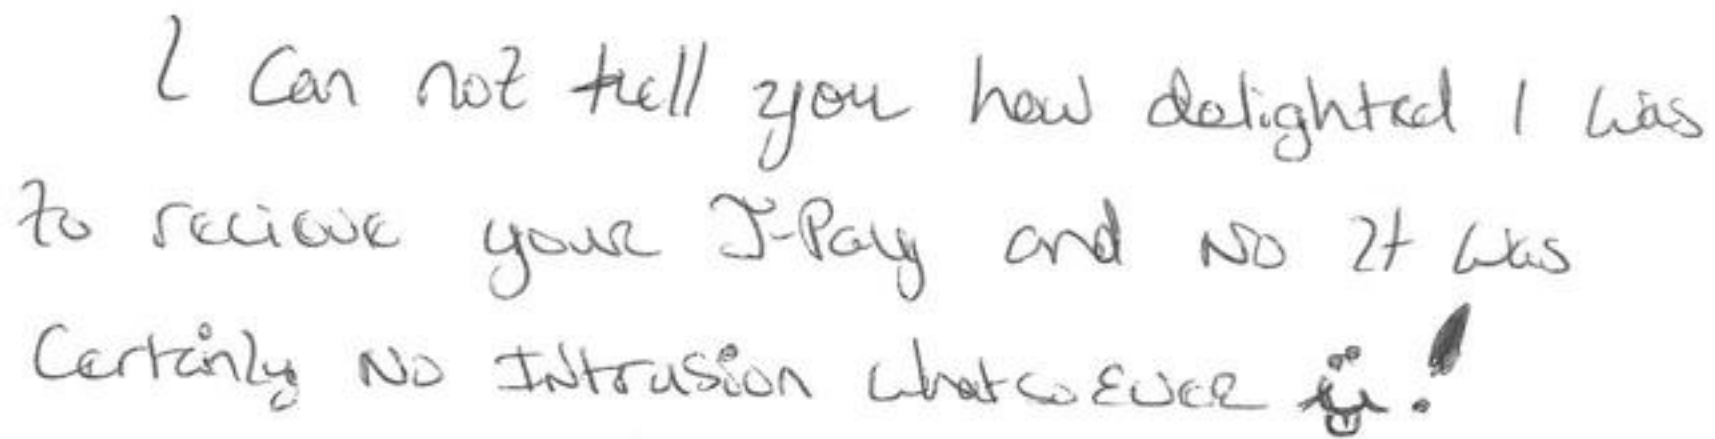 I Can not tell you how delighted I was
to recieve your J-Pay and No It was
Certainly No Intrusion whatsoever !